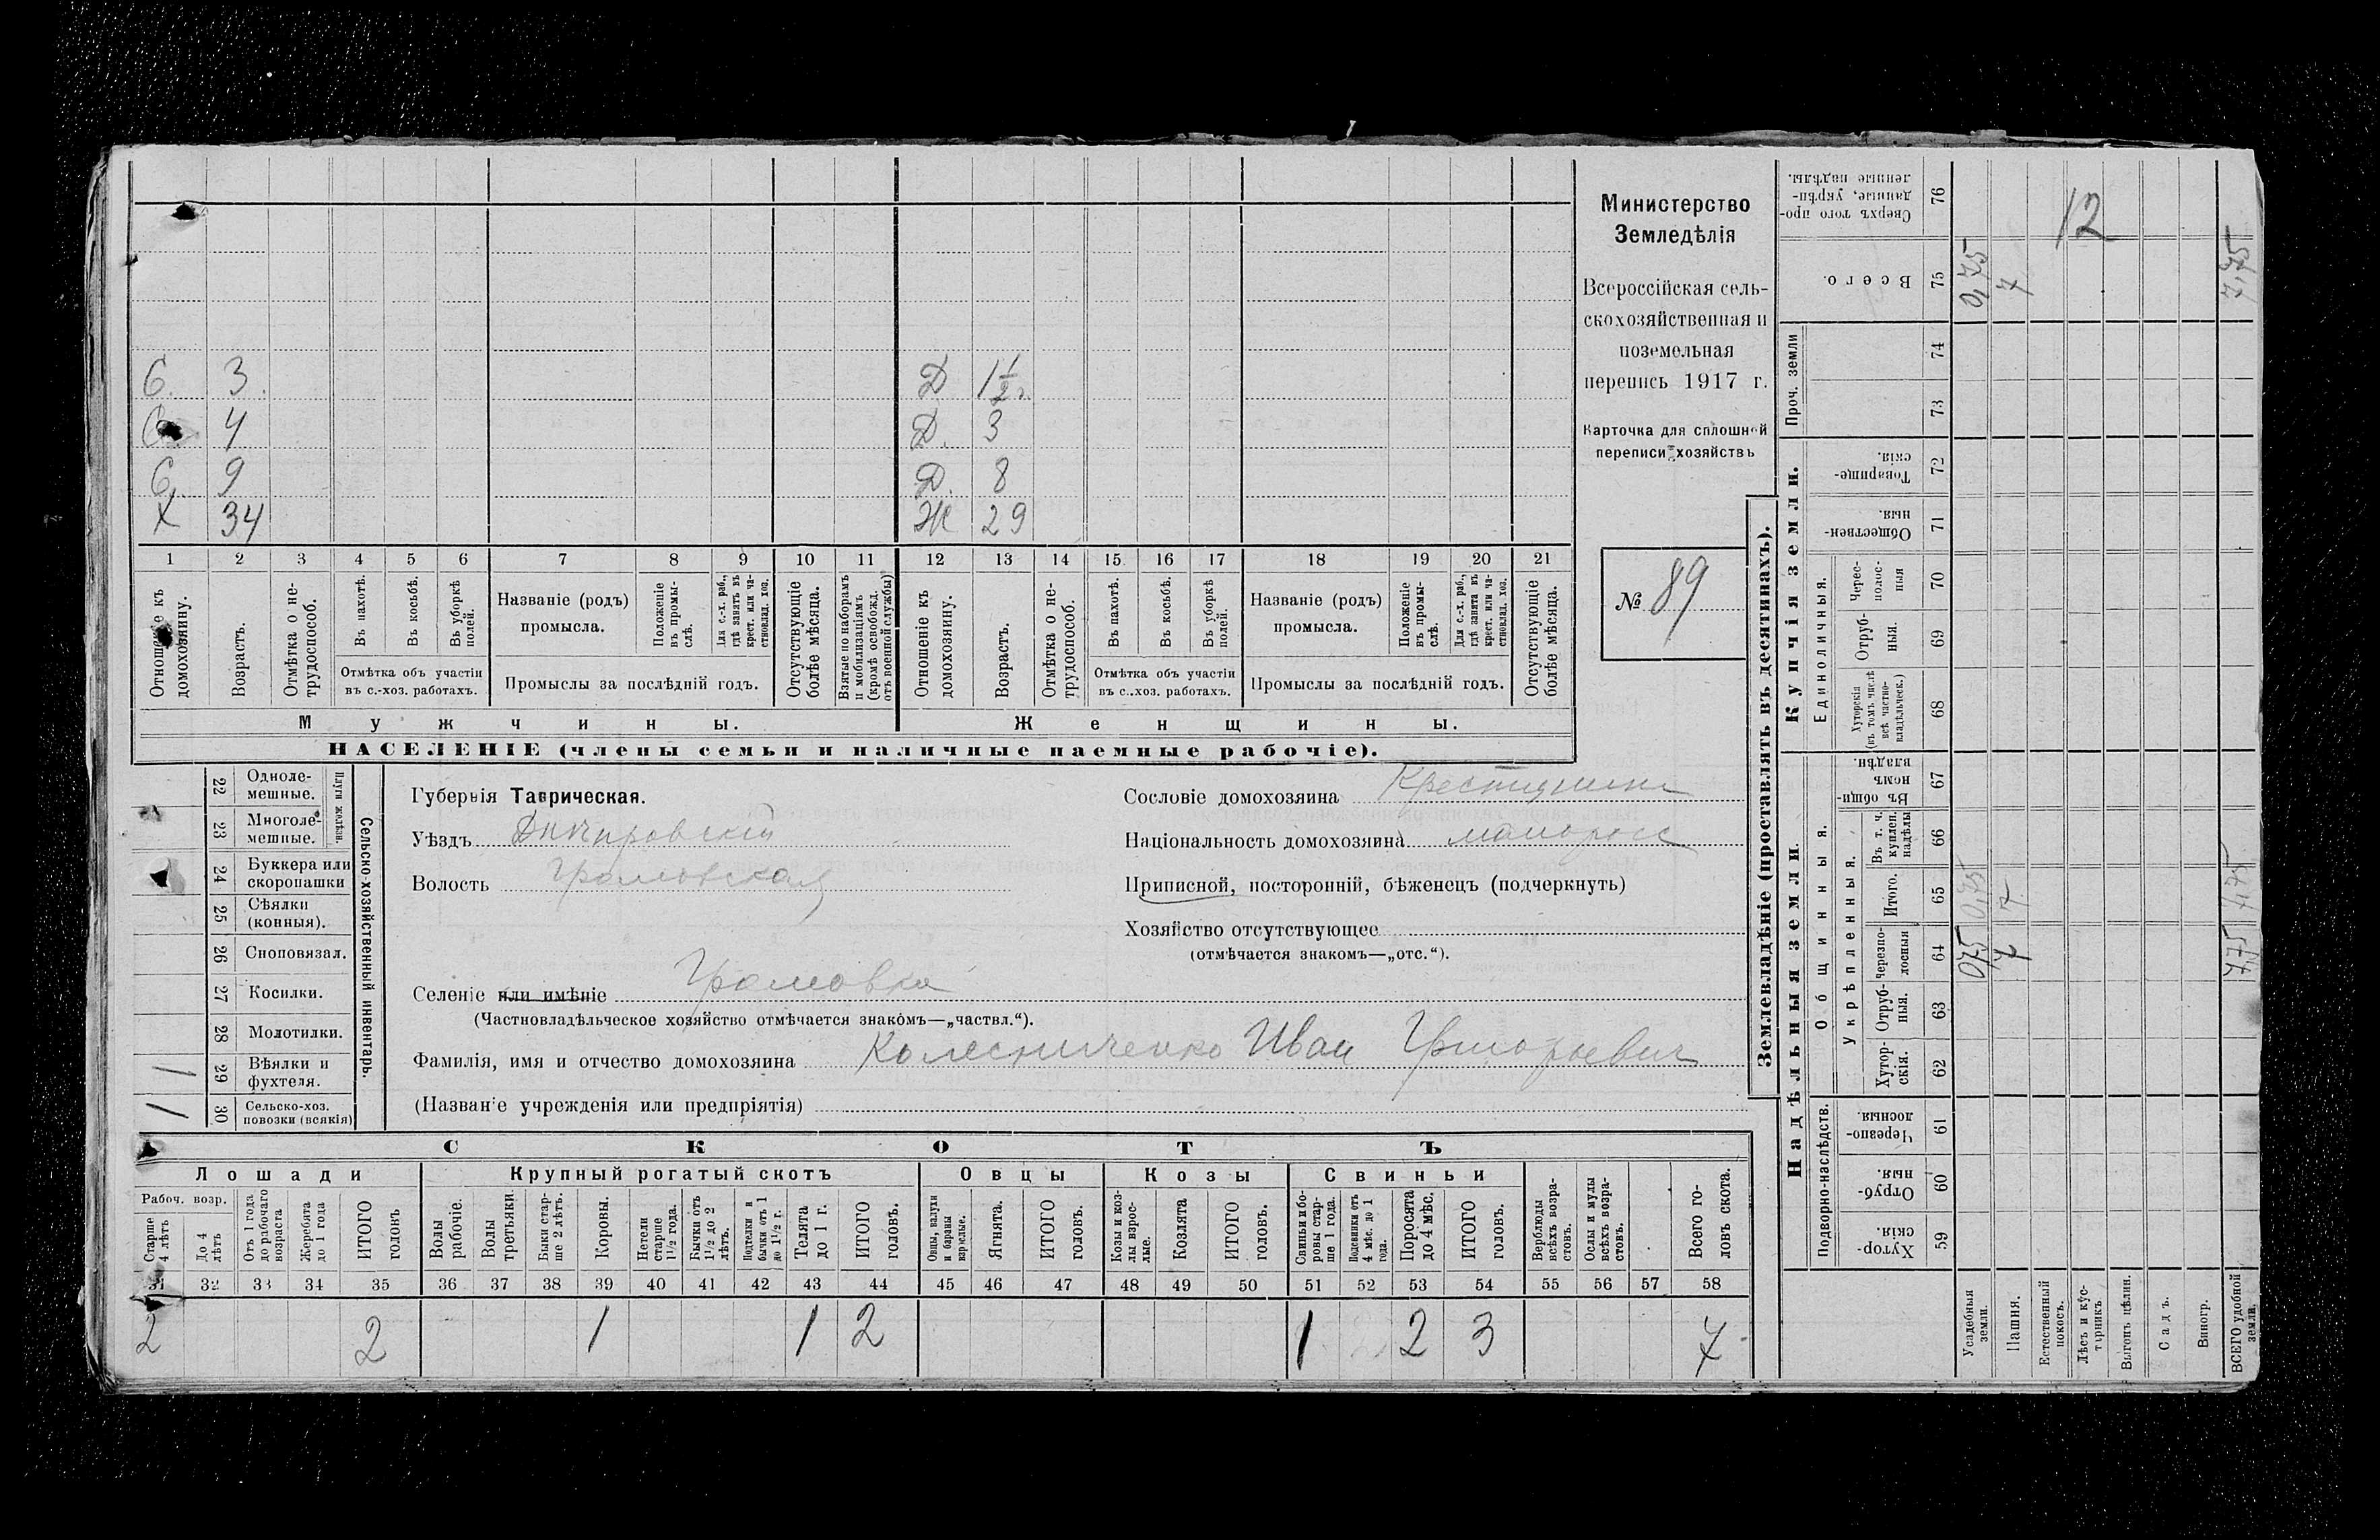 С. 3. Д 1 1/2 г.
С. 4 Д. 3
С. 9 Д. 8
Х 34 Ж 29
1 2 3 4 5 6 7 8 9 10 11 12 13 14 15 16 17 18 19 20 21
Отношеніе къ домохозяину.
Возрастъ.
Отмѣтка о не-трудоспособ.
Въ пахотѣ.
Въ косьбѣ.
Въ уборкѣ полей.
Отмѣтка объ участіи въ с.-хоз. работахъ.
Названіе (родъ) промысла.
Положеніе въ промы-слѣ.
Для с.-х. раб., гдѣ занятъ въ крест. или ча-стновлад. хоз.
Промыслы за послѣдній годъ.
Отсутствующіе болѣе мѣсяца.
Взятые по наборамъ и мобилизаціямъ (кромѣ освобожд. отъ военной службы)
Отношеніе къ домохозяину.
Возрастъ.
Отмѣтка о не-трудоспособ.
Въ пахотѣ.
Въ косьбѣ.
Въ уборкѣ полей.
Отмѣтка объ участіи въ с.-хоз. работахъ.
Названіе (родъ) промысла.
Положеніе въ промы-слѣ.
Для с.-х. раб., гдѣ занята въ крест. или ча-стновлад. хоз.
Промыслы за послѣдній годъ.
Отсутствующіе болѣе мѣсяца.
Мужчины. Женщины.
НАСЕЛЕНІЕ (члены семьи и наличные наемные рабочіе).
Министерство
Земледѣлія
Всероссійская сель-
скохозяйственная и
поземельная
перепись 1917 г.
Карточка для сплошной
переписи хозяйствъ
№ 89
22 Одноле-мешные.
23 Многоле-мешные.
Плуги желѣзн.
24 Буккера или скоропашки
25 Сѣялки (конныя).
26 Сноповязал.
27 Косилки.
28 Молотилки.
1 29 Вѣялки и фухтеля.
1 30 Сельско-хоз. повозки (всякія)
Сельско-хозяйственный инвентарь.
Губернія Таврическая.
Уѣздъ Днѣпровскій
Волость Громовская
Селеніе или имѣніе Громовка
(Частновладѣльческое хозяйство отмѣчается знакомъ—„частвл.“).
Фамилія, имя и отчество домохозяина Колесниченко Иван Григорьевич
(Названіе учрежденія или предпріятія)
Сословіе домохозяина Крестьянин
Національность домохозяина малоросс
Приписной, посторонній, бѣженецъ (подчеркнуть)
Хозяйство отсутствующее
(отмѣчается знакомъ—„отс.“).
СКОТЪ
Лошади Крупный рогатый скотъ Овцы Козы Свиньи
Рабоч. возр.
Старше 4 лѣтъ
До 4 лѣтъ
Отъ 1 года до рабочаго возраста
Жеребята до 1 года
ИТОГО головъ
Волы рабочіе.
Волы третьяки.
Быки стар-ше 2 лѣтъ.
Коровы.
Нетели старше 1 1/2 года.
Бычки отъ 1 1/2 до 2 лѣтъ.
Подтелки и бычки отъ 1 до 1 1/2 г.
Телята до 1 г.
ИТОГО головъ.
Овцы, валухи и бараны взрослые.
Ягнята.
ИТОГО головъ.
Козы и коз-лы взрос-лые.
Козлята
ИТОГО головъ.
Свиньи и бо-ровы стар-ше 1 года.
Подсвинки отъ 4 мѣс. до 1 года.
Поросята до 4 мѣс.
ИТОГО головъ.
Верблюды всѣхъ возра-стовъ.
Ослы и мулы всѣхъ возра-стовъ.
Всего го-ловъ скота.
31 32 33 34 35 36 37 38 39 40 41 42 43 44 45 46 47 48 49 50 51 52 53 54 55 56 57 58
2 2 1 1 2 1 2 3 7
Землевладѣніе (проставлять въ десятинахъ).
Надѣльныя земли. Купчія земли. Проч. земли
Подворно-наслѣдств. Общинныя. Укрѣпленныя. Единоличныя.
Хутор-скія. 59
Отруб-ныя. 60
Черезпо-лосныя 61
Хутор-скія. 62
Отруб-ныя. 63
Черезпо-лосныя 64
Итого. 65
Въ т. ч. куплен. надѣлы 66
Въ общин-номъ владѣн. 67
Хуторскія (въ томъ числѣ всѣ частно-владѣльческ.) 68
Отруб-ныя. 69
Черес-полос-ныя 70
Обществен-ныя. 71
Товарище-скія. 72
73
74
Всего. 75
Сверхъ того про-данные, укрѣп-ленные надѣлы. 76
Усадебныя земли. 0,75 0,75 0,75
Пашня. 7 7 7
Естественный покосъ.
Лѣсъ и кус-тарникъ
Выгонъ цѣлин.
Садъ.
Виногр.
ВСЕГО удобной земли. 7,75 7,75 7,75
12